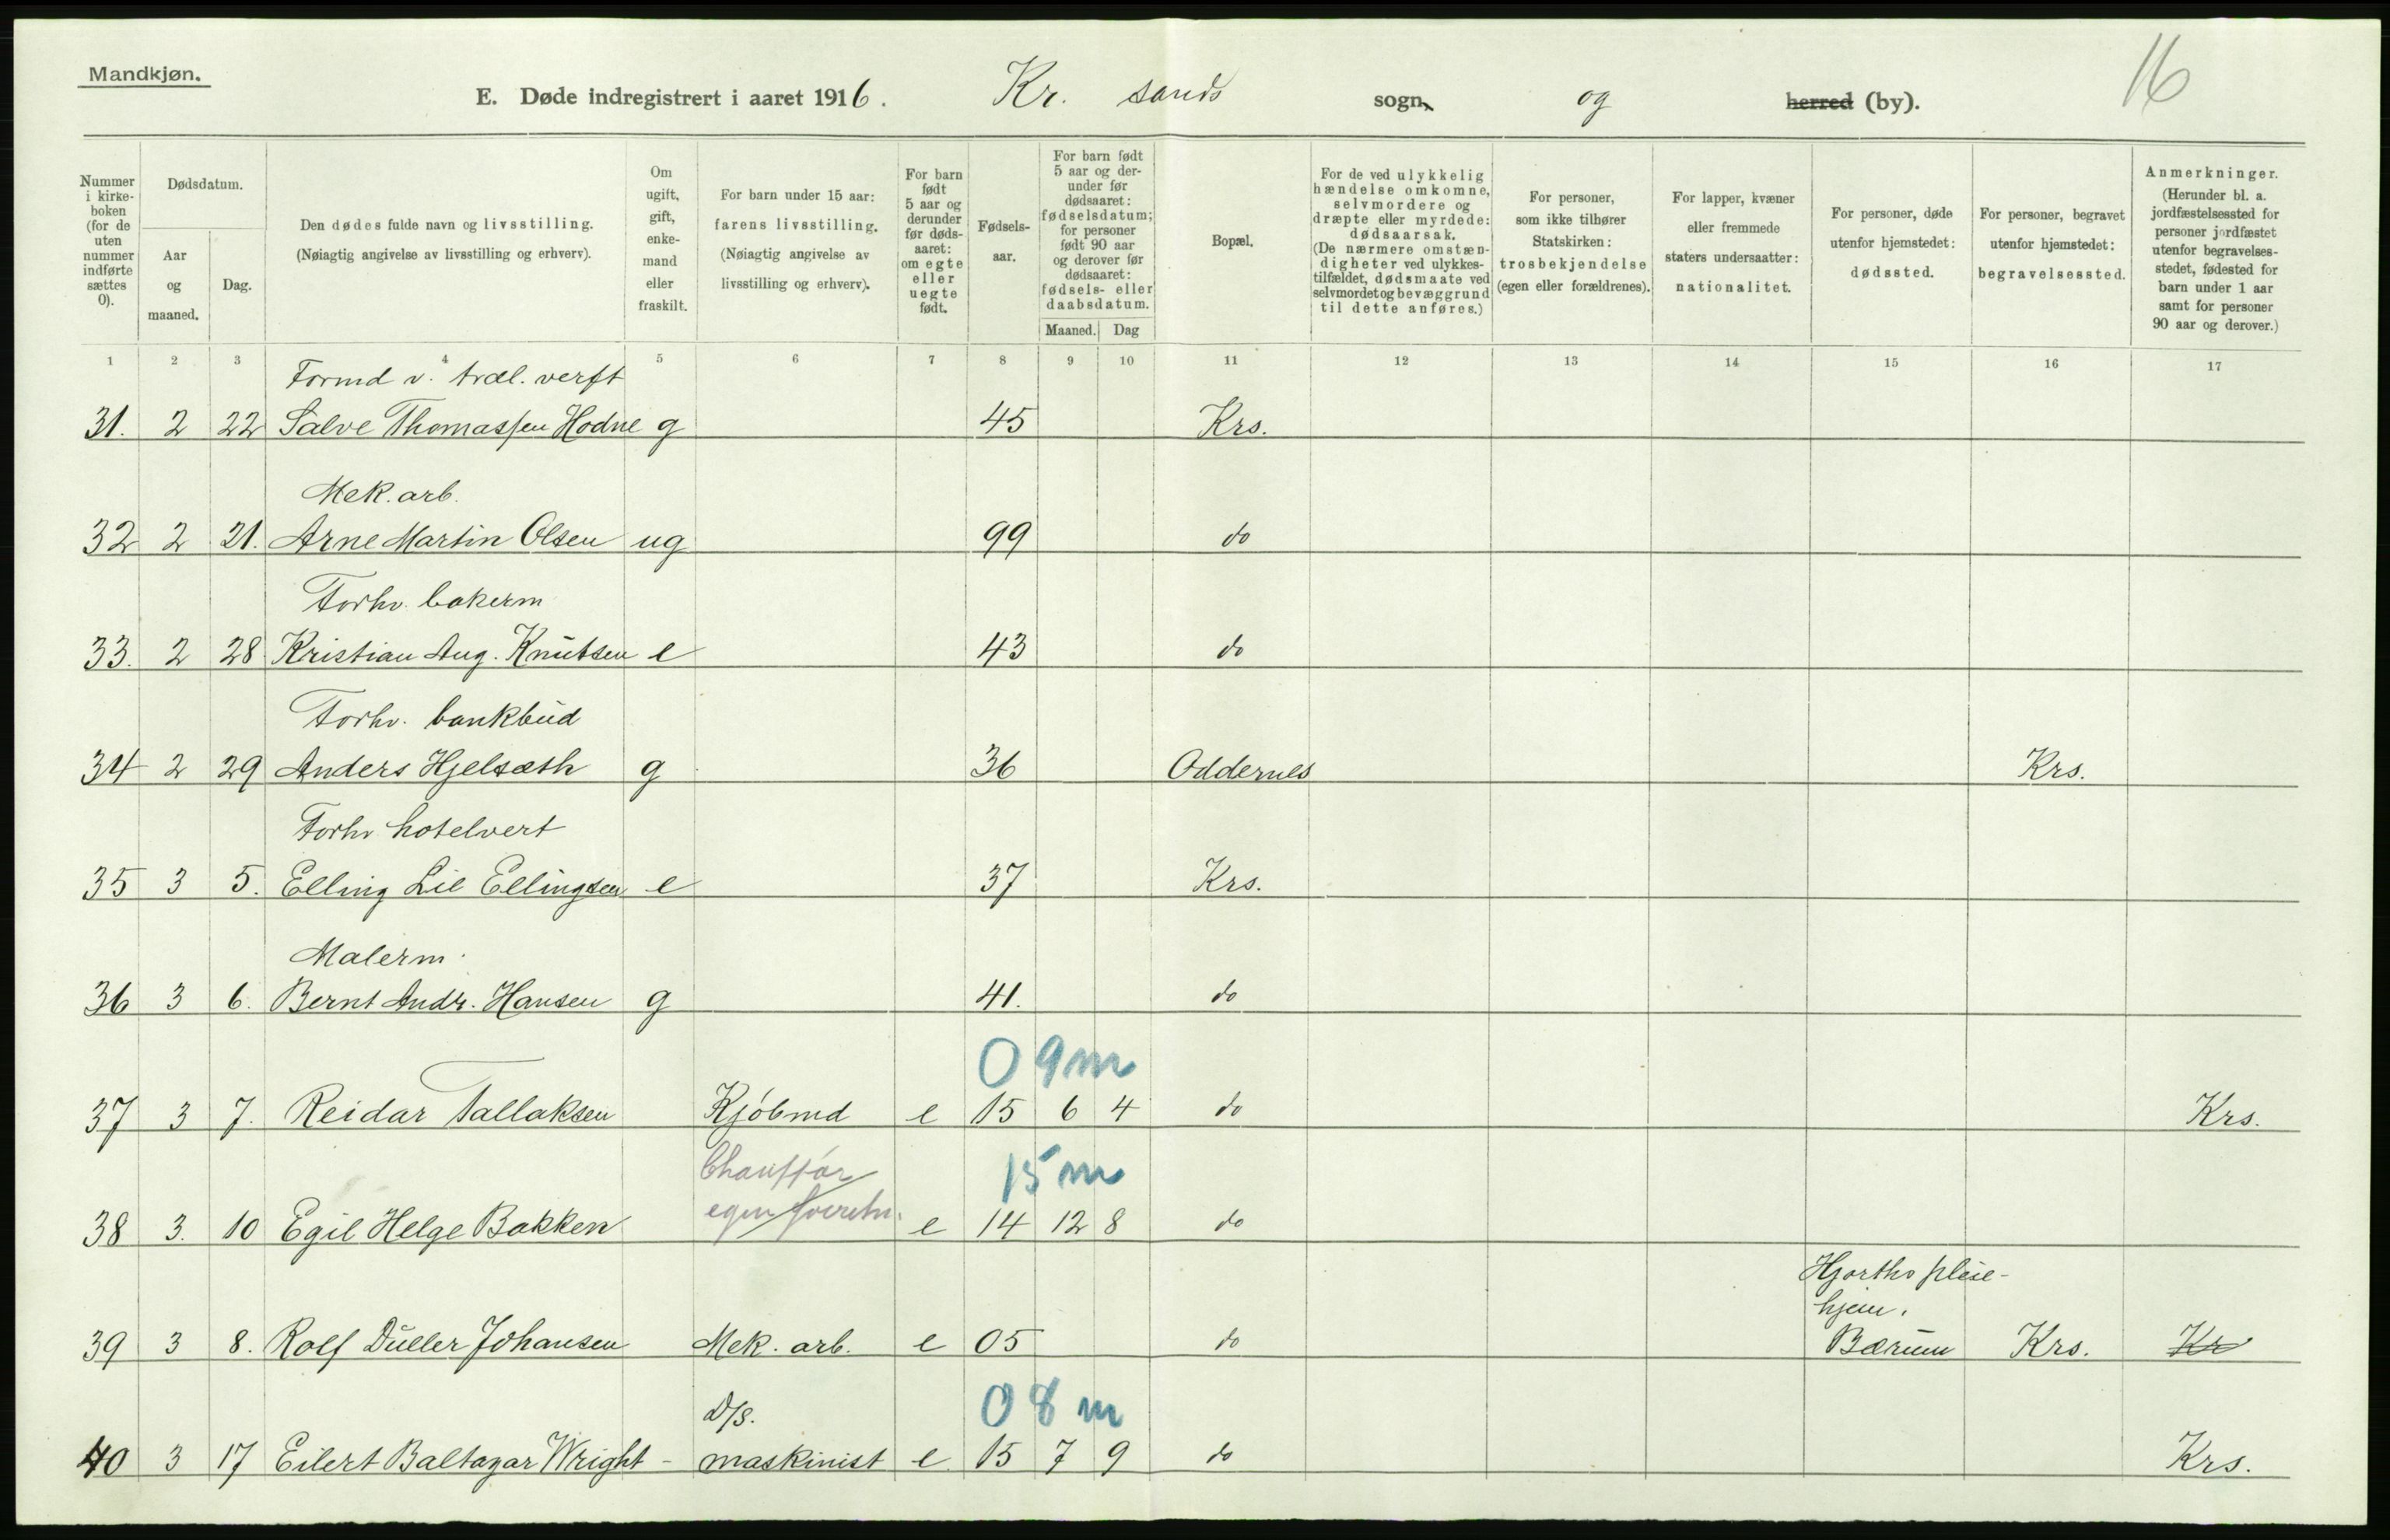 Mandkjøn.
16
E. Døde indregistrert i aaret 1916. Kr. sands sogn, og herred (by).
Nummer i kirke-boken (for de uten nummer indførte sættes 0).
Dødsdatum.
Aar og maaned.
Dag.
Den dødes fulde navn og livsstilling.
(Nøiagtig angivelse av livsstilling og erhverv).
Om ugift, gift, enke-mand eller fraskilt.
For barn under 15 aar: farens livsstilling.
(Nøiagtig angivelse av livsstilling og erhverv).
For barn født 5 aar og derunder før døds-aaret: om egte eller uegte født.
Fødsels-aar.
For barn født 5 aar og der-under før dødsaaret: fødselsdatum; for personer født 90 aar og derover før dødsaaret: fødsels- eller daabsdatum.
Maaned. Dag
Bopæl.
For de ved ulykkelig hændelse omkomne, selvmordere og dræpte eller myrdede: dødsaarsak.
(De nærmere omstæn-digheter ved ulykkes-tilfældet, dødsmaate ved selvmordet og bevæggrund til dette anføres.)
For personer, som ikke tilhører Statskirken: trosbekjendelse (egen eller forældrenes).
For lapper, kvæner eller fremmede staters undersaatter: nationalitet.
For personer, døde utenfor hjemstedet: dødssted.
For personer, begravet utenfor hjemstedet: begravelsessted.
Anmerkninger.
(Herunder bl. a. jordfæstelsessted for personer jordfæstet utenfor begravelses-stedet, fødested for barn under 1 aar samt for personer 90 aar og derover.)
1 2 3 4 5 6 7 8 9 10 11 12 13 14 15 16 17
Formd v. træl. verft
31. 2 22 Salve Thomassen Hodne g 45 Krs.
Mek. arb.
32 2 21. Arne Martin Olsen ug 99 do
Forhv. bakerm
33. 2 28 Kristian Aug. Knutsen e 43 do
Forhv. bankbud
34 2 29 Anders Hjelsæth g 36 Oddernes Krs.
Forhv hotelvert
35 3 5. Elling Lie Ellingsen e 37 Krs.
Malerm.
36 3 6. Bernt Andr. Hansen g 41. do
0 9m
37 3 7. Reidar Tallaksen Kjöbmd e 15 6 4 do Krs.
Chauffør 15 m
38 3. 10 Egil Helge Bakken egen e 14 12 8 do
Hjorths pleie-
hjem.
39 3 8. Rolf Duller Johansen Mek. arb. e 05 do Bærum Krs. Kr
D/S. 0 8 m
40 3 17 Eilert Baltazar Wright - maskinist e 15 7 9 do Krs.